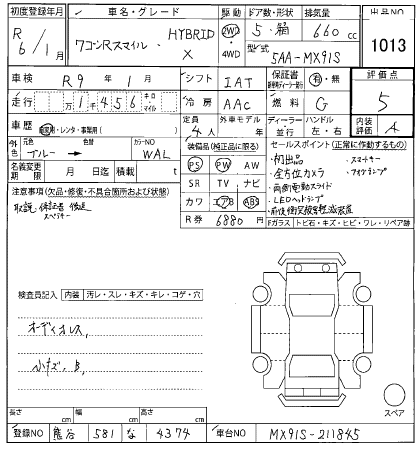 初度登録年月 車名・グレード 駆動 ドア数・形状 排気量 出品NO
R 6/1月 ワゴンRスマイル、HYBRID X 2WD・4WD 5・箱 660 cc 1013
型式 5AA-MX91S
車検 R9年1月 シフト IAT 保証書 有・無 評価点
走行 万 1 4 5 6 キロ・マイル 冷房 AAC 燃料 G 5
車歴 自家用・レンタ・事業用( ) 定員 4人 外車モデル 年 ディーラー・並行 ハンドル 左・右 内装評価 A
外色 元色 ブルー → 色替 カラーNO WAL
装備品(純正品に限る) セールスポイント(正常に作動するもの)
名義変更期限 月 日迄 積載 t
PS PW AW
SR TV ナビ
カワ エアB ABS
R券 6880 円
・初出品 ・スマートキー
・全方位カメラ ・フォグランプ
・両側電動スライド
・LEDヘッドランプ
・前後衝突被害軽減装置
注意事項(欠品・修復・不具合箇所および状態)
取説、保証書 後送
スペアキー
Fガラス トビ石・キズ・ヒビ・ワレ・リペア跡
検査員記入 内装 汚レ・スレ・キズ・キレ・コゲ・穴
オーディオレス、
小キズ、B、
スペア
長さ cm 幅 cm 高さ cm
登録NO 熊谷 581 な 4374 車台NO MX91S-211845